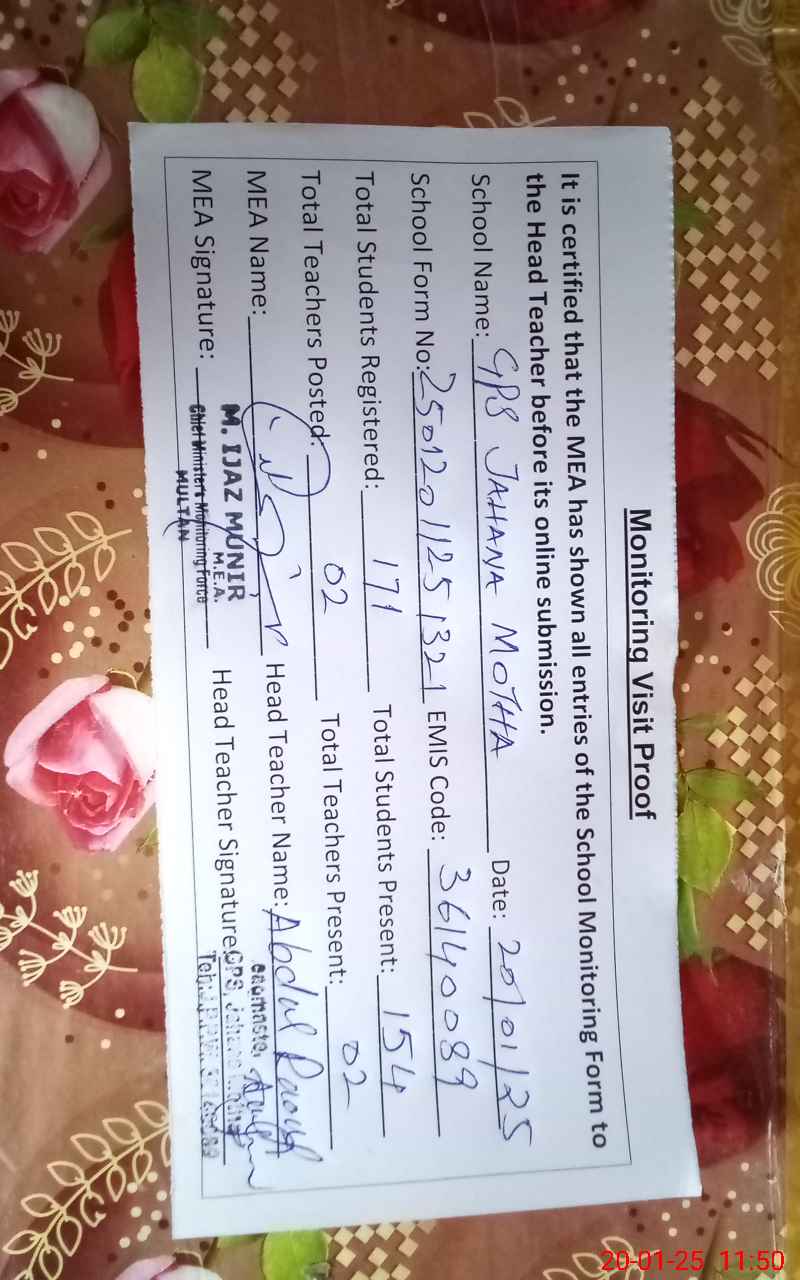 Monitoring Visit Proof
It is certified that the MEA has shown all entries of the School Monitoring Form to
the Head Teacher before its online submission.
School Name: GPS JAHANA MOTHA Date: 20/01/25
School Form No: 25012011251321 EMIS Code: 36140089
Total Students Registered: 171 Total Students Present: 154
Total Teachers Posted: 02 Total Teachers Present: 02
MEA Name: Head Teacher Name: Abdul Raouf
M. IJAZ MUNIR
M.E.A.
MEA Signature: Chief Minister's Monitoring Force Head Teacher Signature: GPS, Jahana
MULTAN
20-01-25 11:50